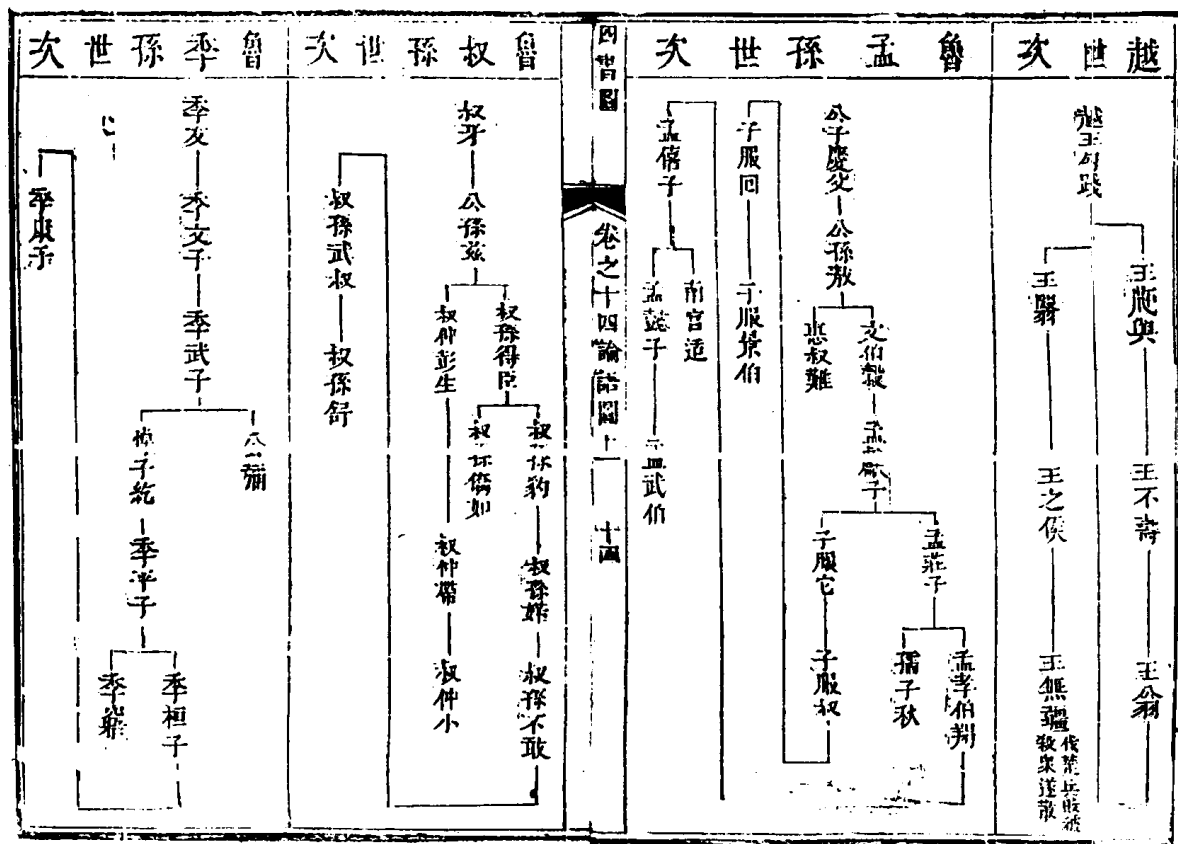 越世次
越王句踐
王鼫與
王不壽
王翁
王翳
王之侯
王無彊
伐楚兵敗被
殺眾遂散
魯孟孫世次
公子慶父
公孫敖
文伯穀
惠叔難
孟獻子
孟莊子
子服它
孟孝伯羯
孺子秩
子服叔
子服回
子服景伯
孟僖子
南宮适
孟懿子
孟武伯
四書圖
卷之十四論語圖十一
十四
魯叔孫世次
叔牙
公孫茲
叔孫得臣
叔仲彭生
叔孫豹
叔孫僑如
叔孫婼
叔仲帶
叔孫不敢
叔仲小
叔孫武叔
叔孫舒
魯季孫世次
季友
季文子
季武子
公彌
悼子紇
季平子
季桓子
季康子